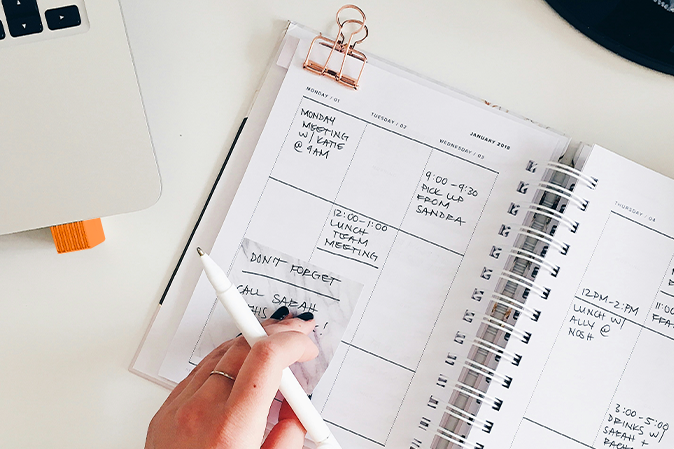 JANUARY 2018
MONDAY / 01
TUESDAY / 02
WEDNESDAY / 03
THURSDAY / 04
MONDAY
MEETING
W/ KATIE
@ 9AM
9:00 - 9:30
PICK UP
FROM
SANDRA
12:00-1:00
LUNCH
TEAM
MEETING
DON'T FORGET
CALL SARAH
12PM-2PM
LUNCH W/
ALLY @
NOSH
3:00-5:00
DRINKS W/
SARAH +